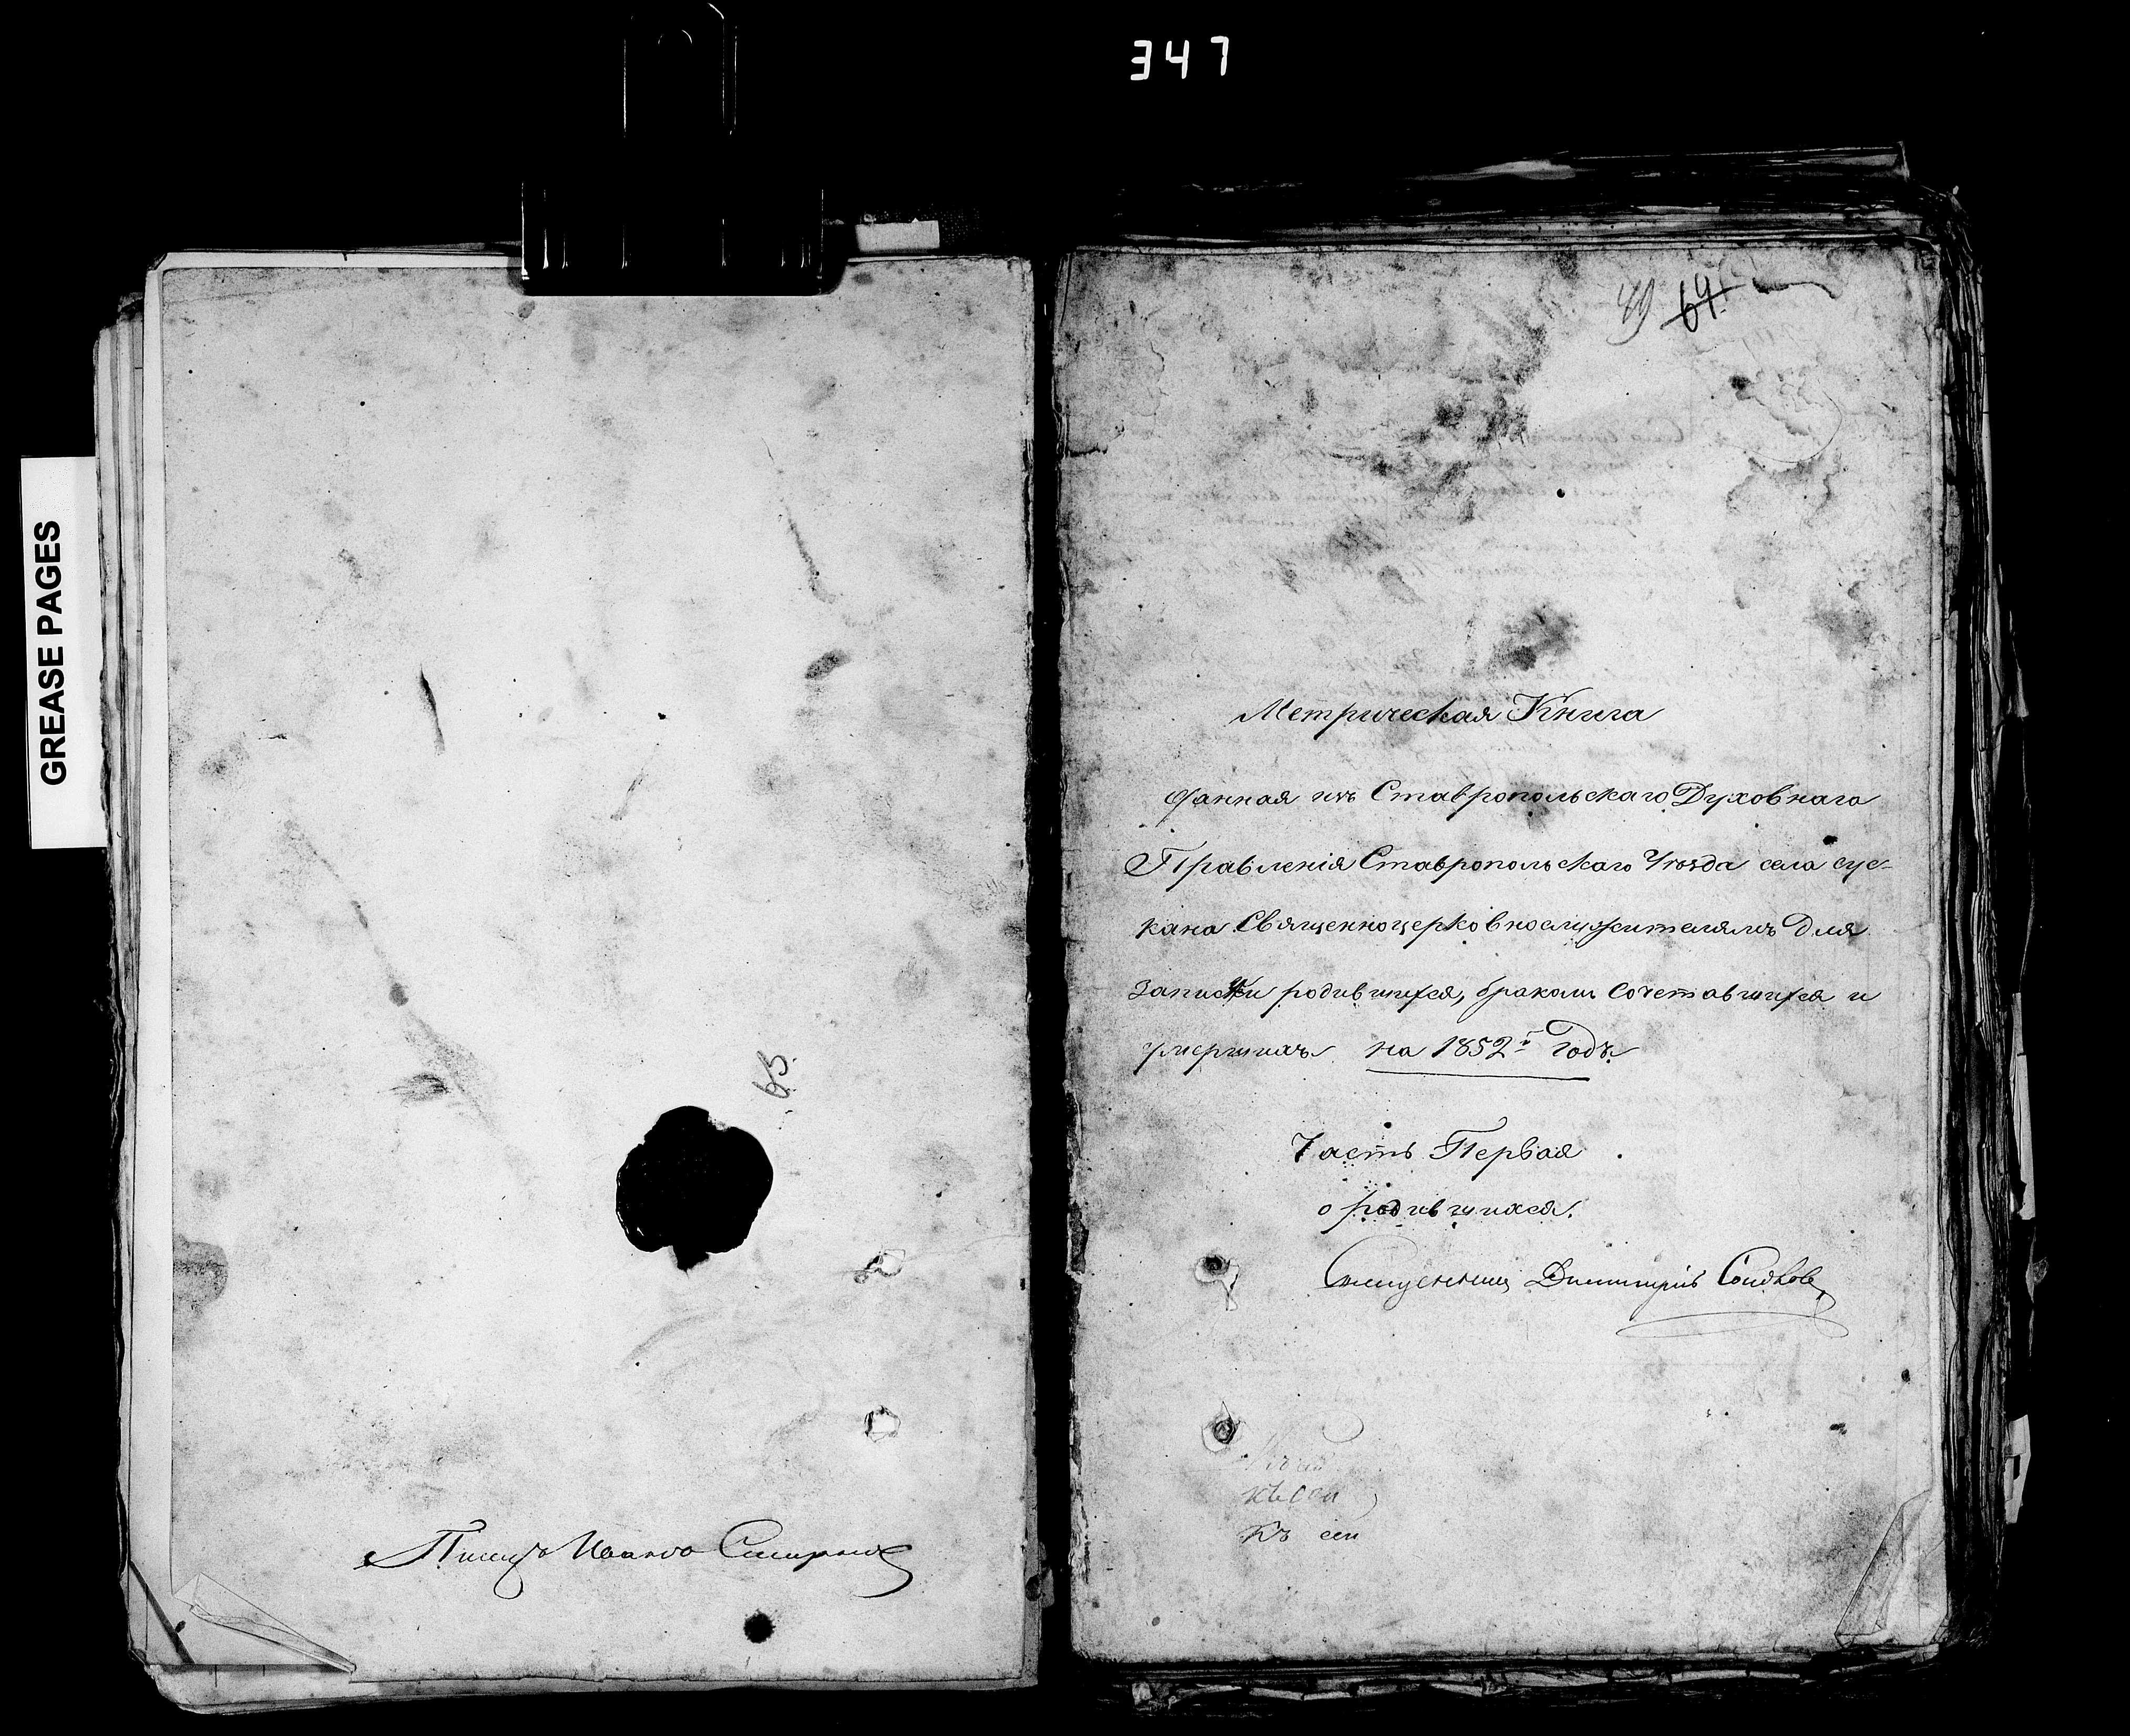 347
GREASE PAGES
65.
Писецъ Иванъ Смирновъ
49 64
Метрическая Книга
данная изъ Ставропольскаго Духовнаго
Правленія Ставропольскаго Уѣзда села сус-
кана Священноцерковнослужителямъ для
записки родившихся, бракомъ сочетавшихся и
умершихъ на 1852й годъ.
Часть Первая
о родившихся.
Священникъ Димитрій
къ сей
къ сей